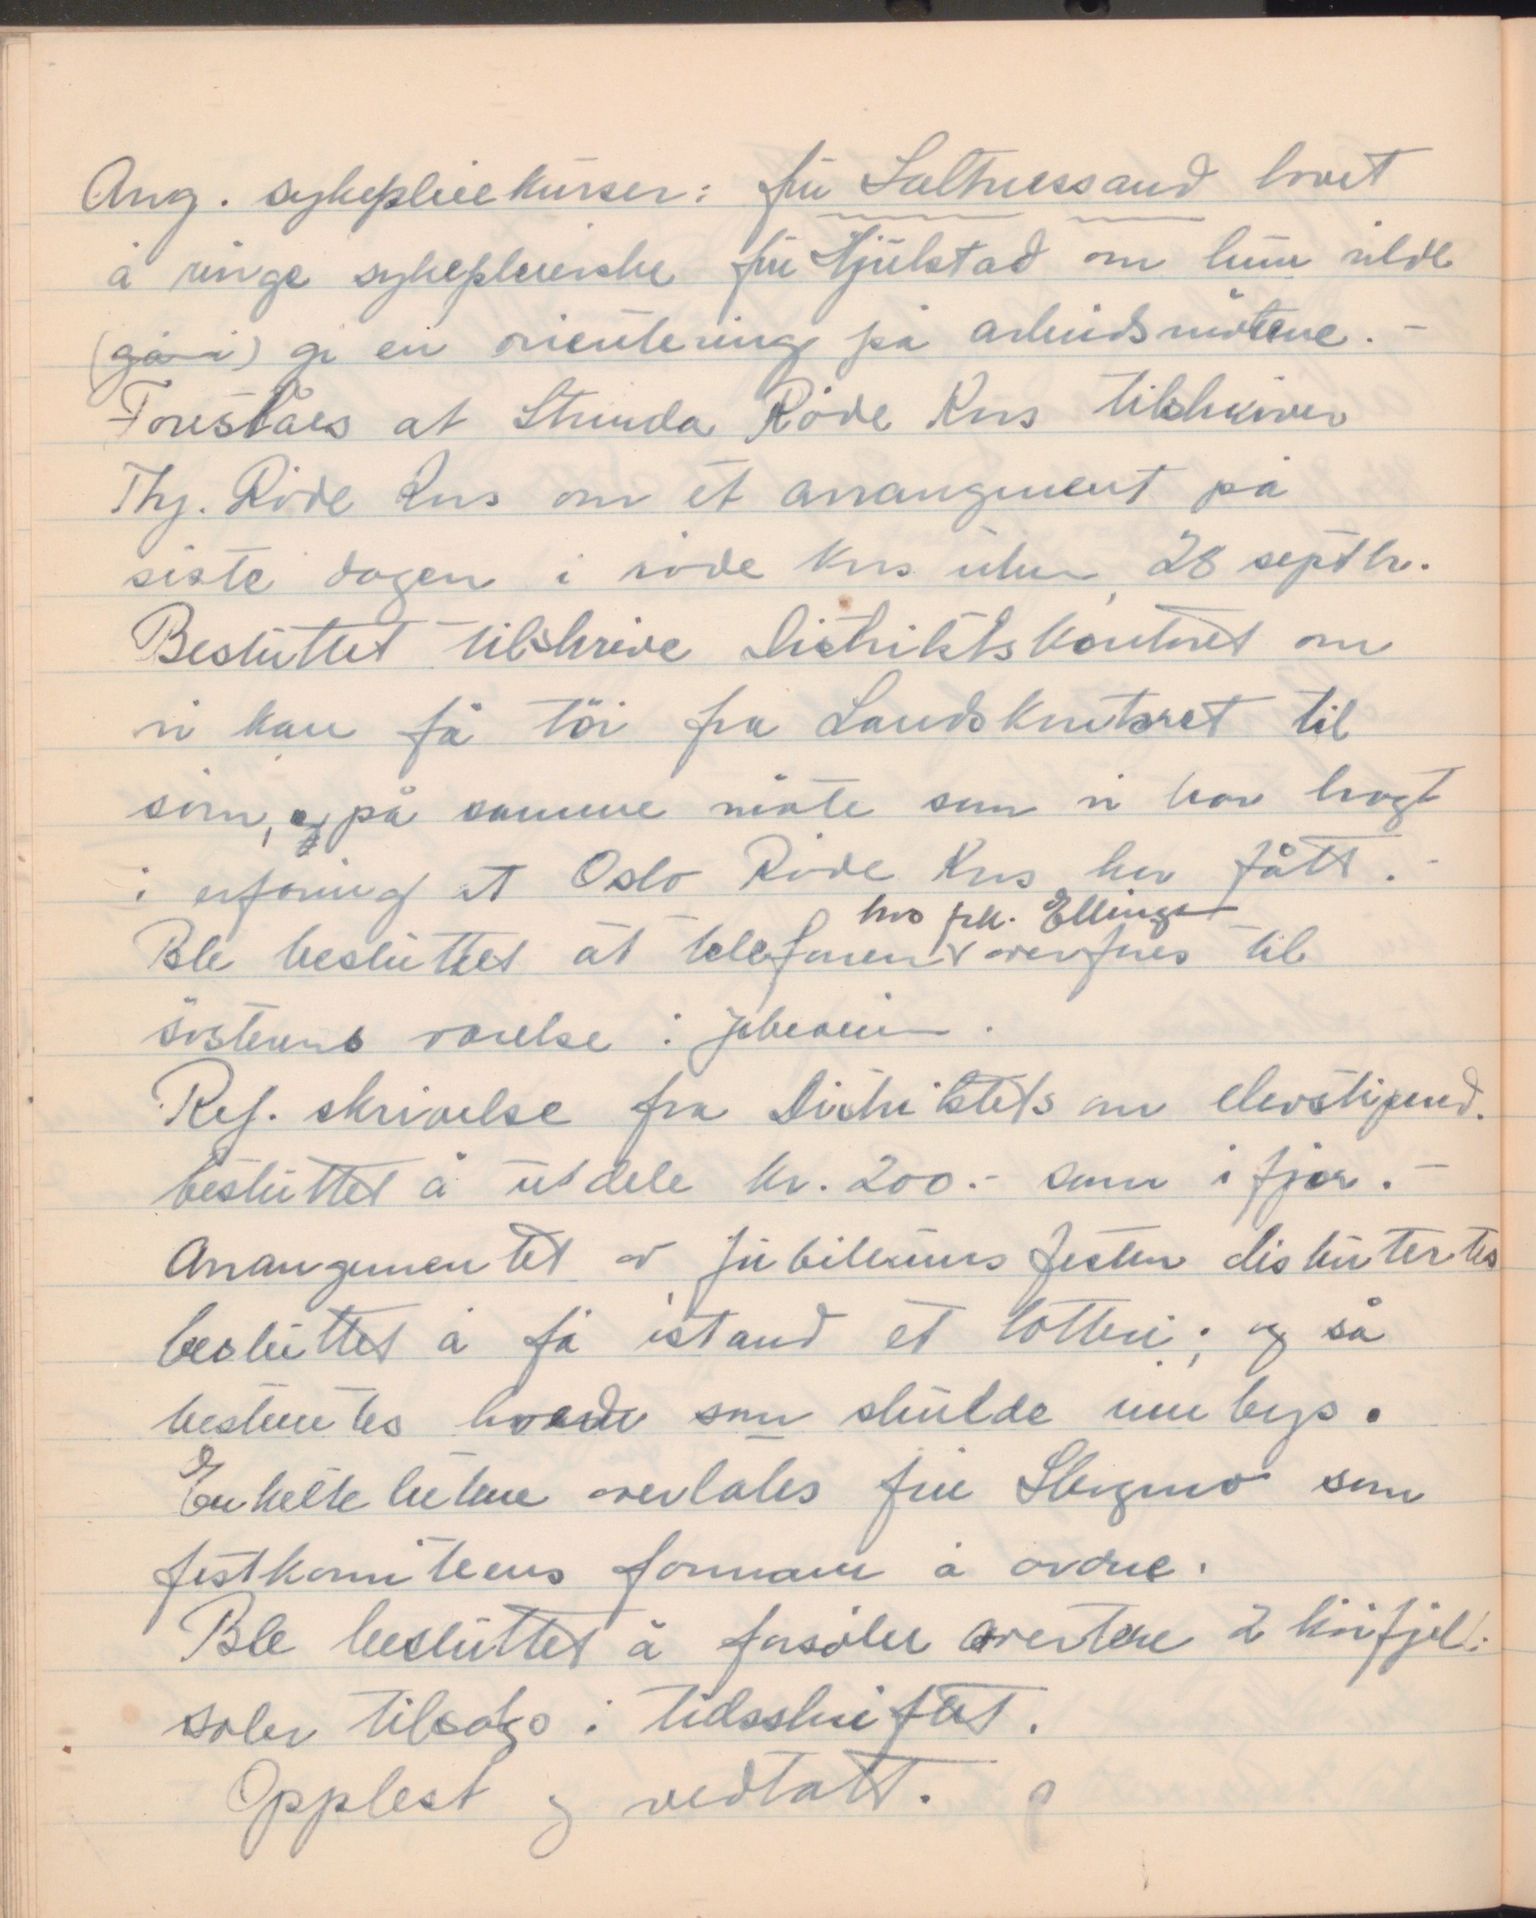 Ang. sykepleiekurser: fru Saltnessand lovet
å ringe sykepleierske fru Hjulstad om hun vilde
(gå i) gi en orientering på arbeidsmötene. -
Foreslåes at Strinda Röde Kors tilskriver
Thj. Röde Kors om et arrangement på
siste dagen i röde Kors uken, 28 septbr.
Besluttet tilskrive Distriktskontoret om
vi kan få töi fra Landskontoret til
söm, og på samme måte som vi har bragt
i erfaring at Oslo Röde Kors har fått. -
hos frk. Ellings
Ble besluttet at telefonen overföres til
Sösterens værelse i
Ref. skrivelse fra Distriktets om elevstipend.
besluttet å utdele kr. 200.- som i fjor. -
Arrangementet av jubileums festen diskutertes
besluttet å få istand et lotteri; og så
bestemtes hvem som skulde innbys.
Enkelthetene overlates fru som
festkomiteens formann å ordne.
Ble besluttet å 2
soler tilsalgs i tidsskriftet.
Opplest og vedtatt.